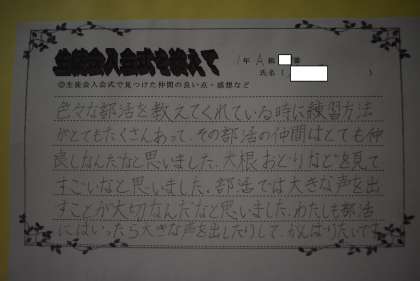 生徒会入会式を終えて
1年A組 番
氏名( )
◎生徒会入会式で見つけた仲間の良い点・感想など
色々な部活を教えてくれている時に練習方法
がとてもたくさんあって、その部活の仲間はとても仲
良しなんだなと思いました。大根おどりなどを見て
すごいなと思いました。部活では大きな声を出
すことが大切なんだなと思いました。わたしも部活
にはいったら大きな声を出したりして、がんばりたいです。